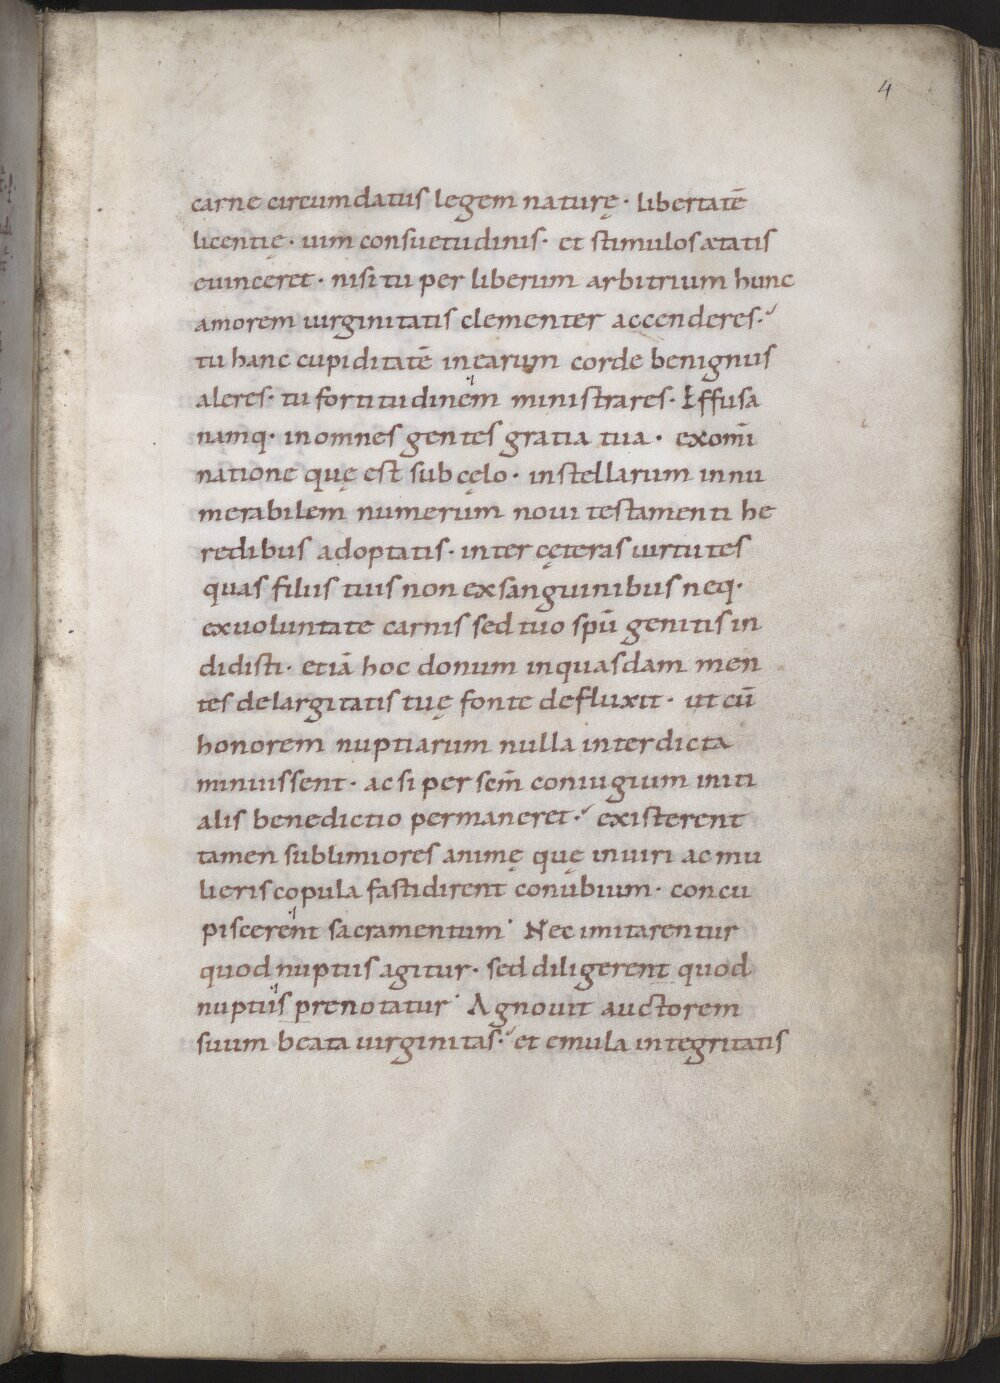 4
carne circumdatus legem naturę · libertatē
licentię · uim consuetudinis · et stimulos ætatis
euinceret · nisi tu per liberum arbitrium hunc
amorem uirginitatis clementer accenderes ·
tu hanc cupiditatē in earum corde benignus
aleres · tu fortitudinem ministrares · Effusa
namq · in omnes gentes gratia tua · ex omī
natione quę est sub cęlo · in stellarum innu
merabilem numerum noui testamenti he
redibus adoptatis · inter cęteras uirtutes
quas filiis tuis non ex sanguinibus neq ·
ex uoluntate carnis sed tuo spū genitis in
didisti · etiā hoc donum in quasdam men
tes de largitatis tuę fonte defluxit · ut cū
honorem nuptiarum nulla interdicta
minuissent · ac si per sem̄ coniugium initi
alis benedictio permaneret · existerent
tamen sublimiores animę quę in uiri ac mu
lieris copula fastidirent conubium · concu
piscerent sacramentum · Nec imitarentur
quod nuptiis agitur · sed diligerent quod
nuptiis prenotatur · Agnouit auctorem
suum beata uirginitas · et emula integritatis